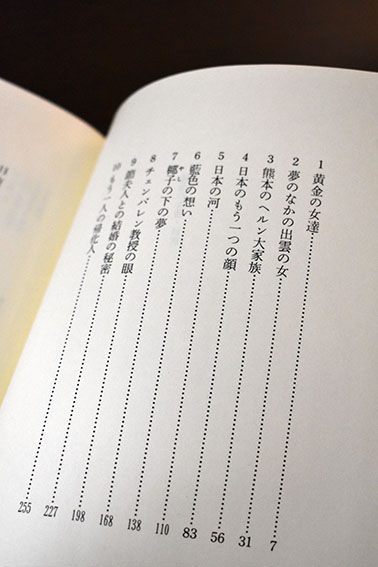 1 黄金の女達 7
2 夢のなかの出雲の女 31
3 熊本のヘルン大家族 56
4 日本のもう一つの顔 83
5 日本の河 110
6 藍色の想い 138
7 椰子の下の夢 168
8 チェンバレン教授の眼 198
9 節夫人との結婚の秘密 227
10 もう一人の帰化人 255